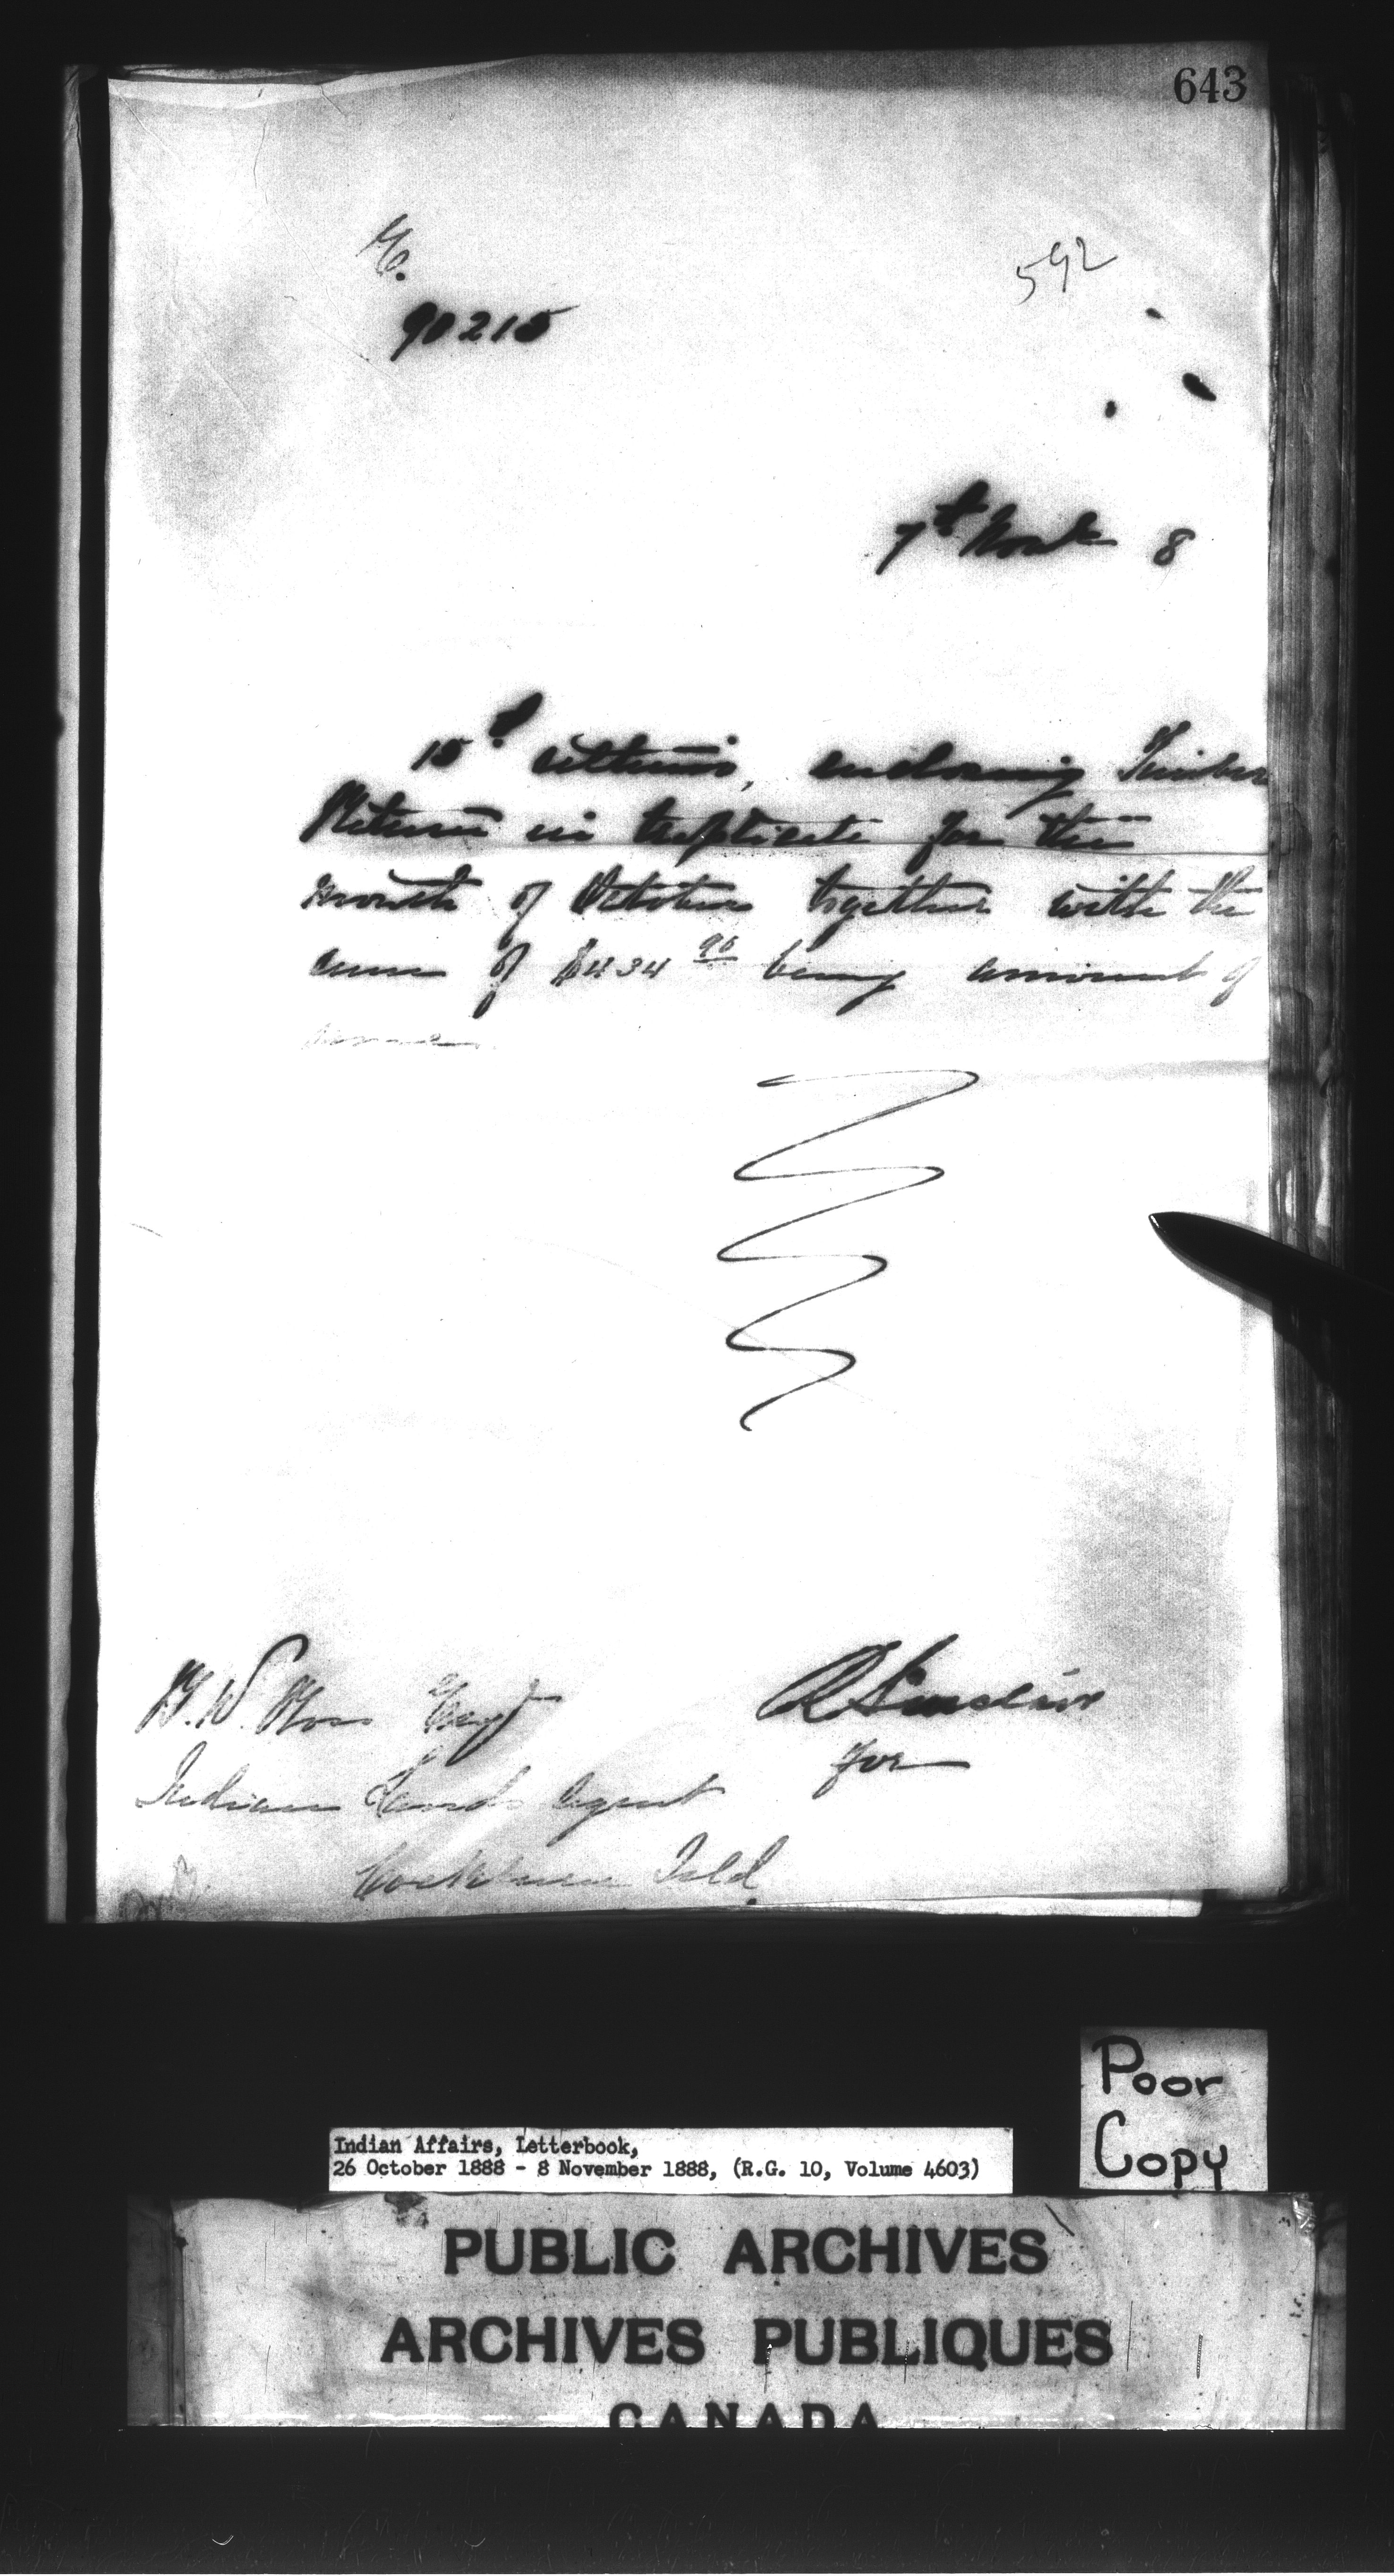 643
592
90215
7th Novr 8
15th ultimo, enclosing Timber
Returns in triplicate for the
month of October together with the
sum of $434 90 being amount of
same.
B. W. Ross Esqr
R Sinclair
for
Indian Lands Agent
Cockburn Isld.
Poor
Copy
Indian Affairs, Letterbook,
26 October 1888 - 8 November 1888, (R.G. 10, Volume 4603)
PUBLIC ARCHIVES
ARCHIVES PUBLIQUES
CANADA